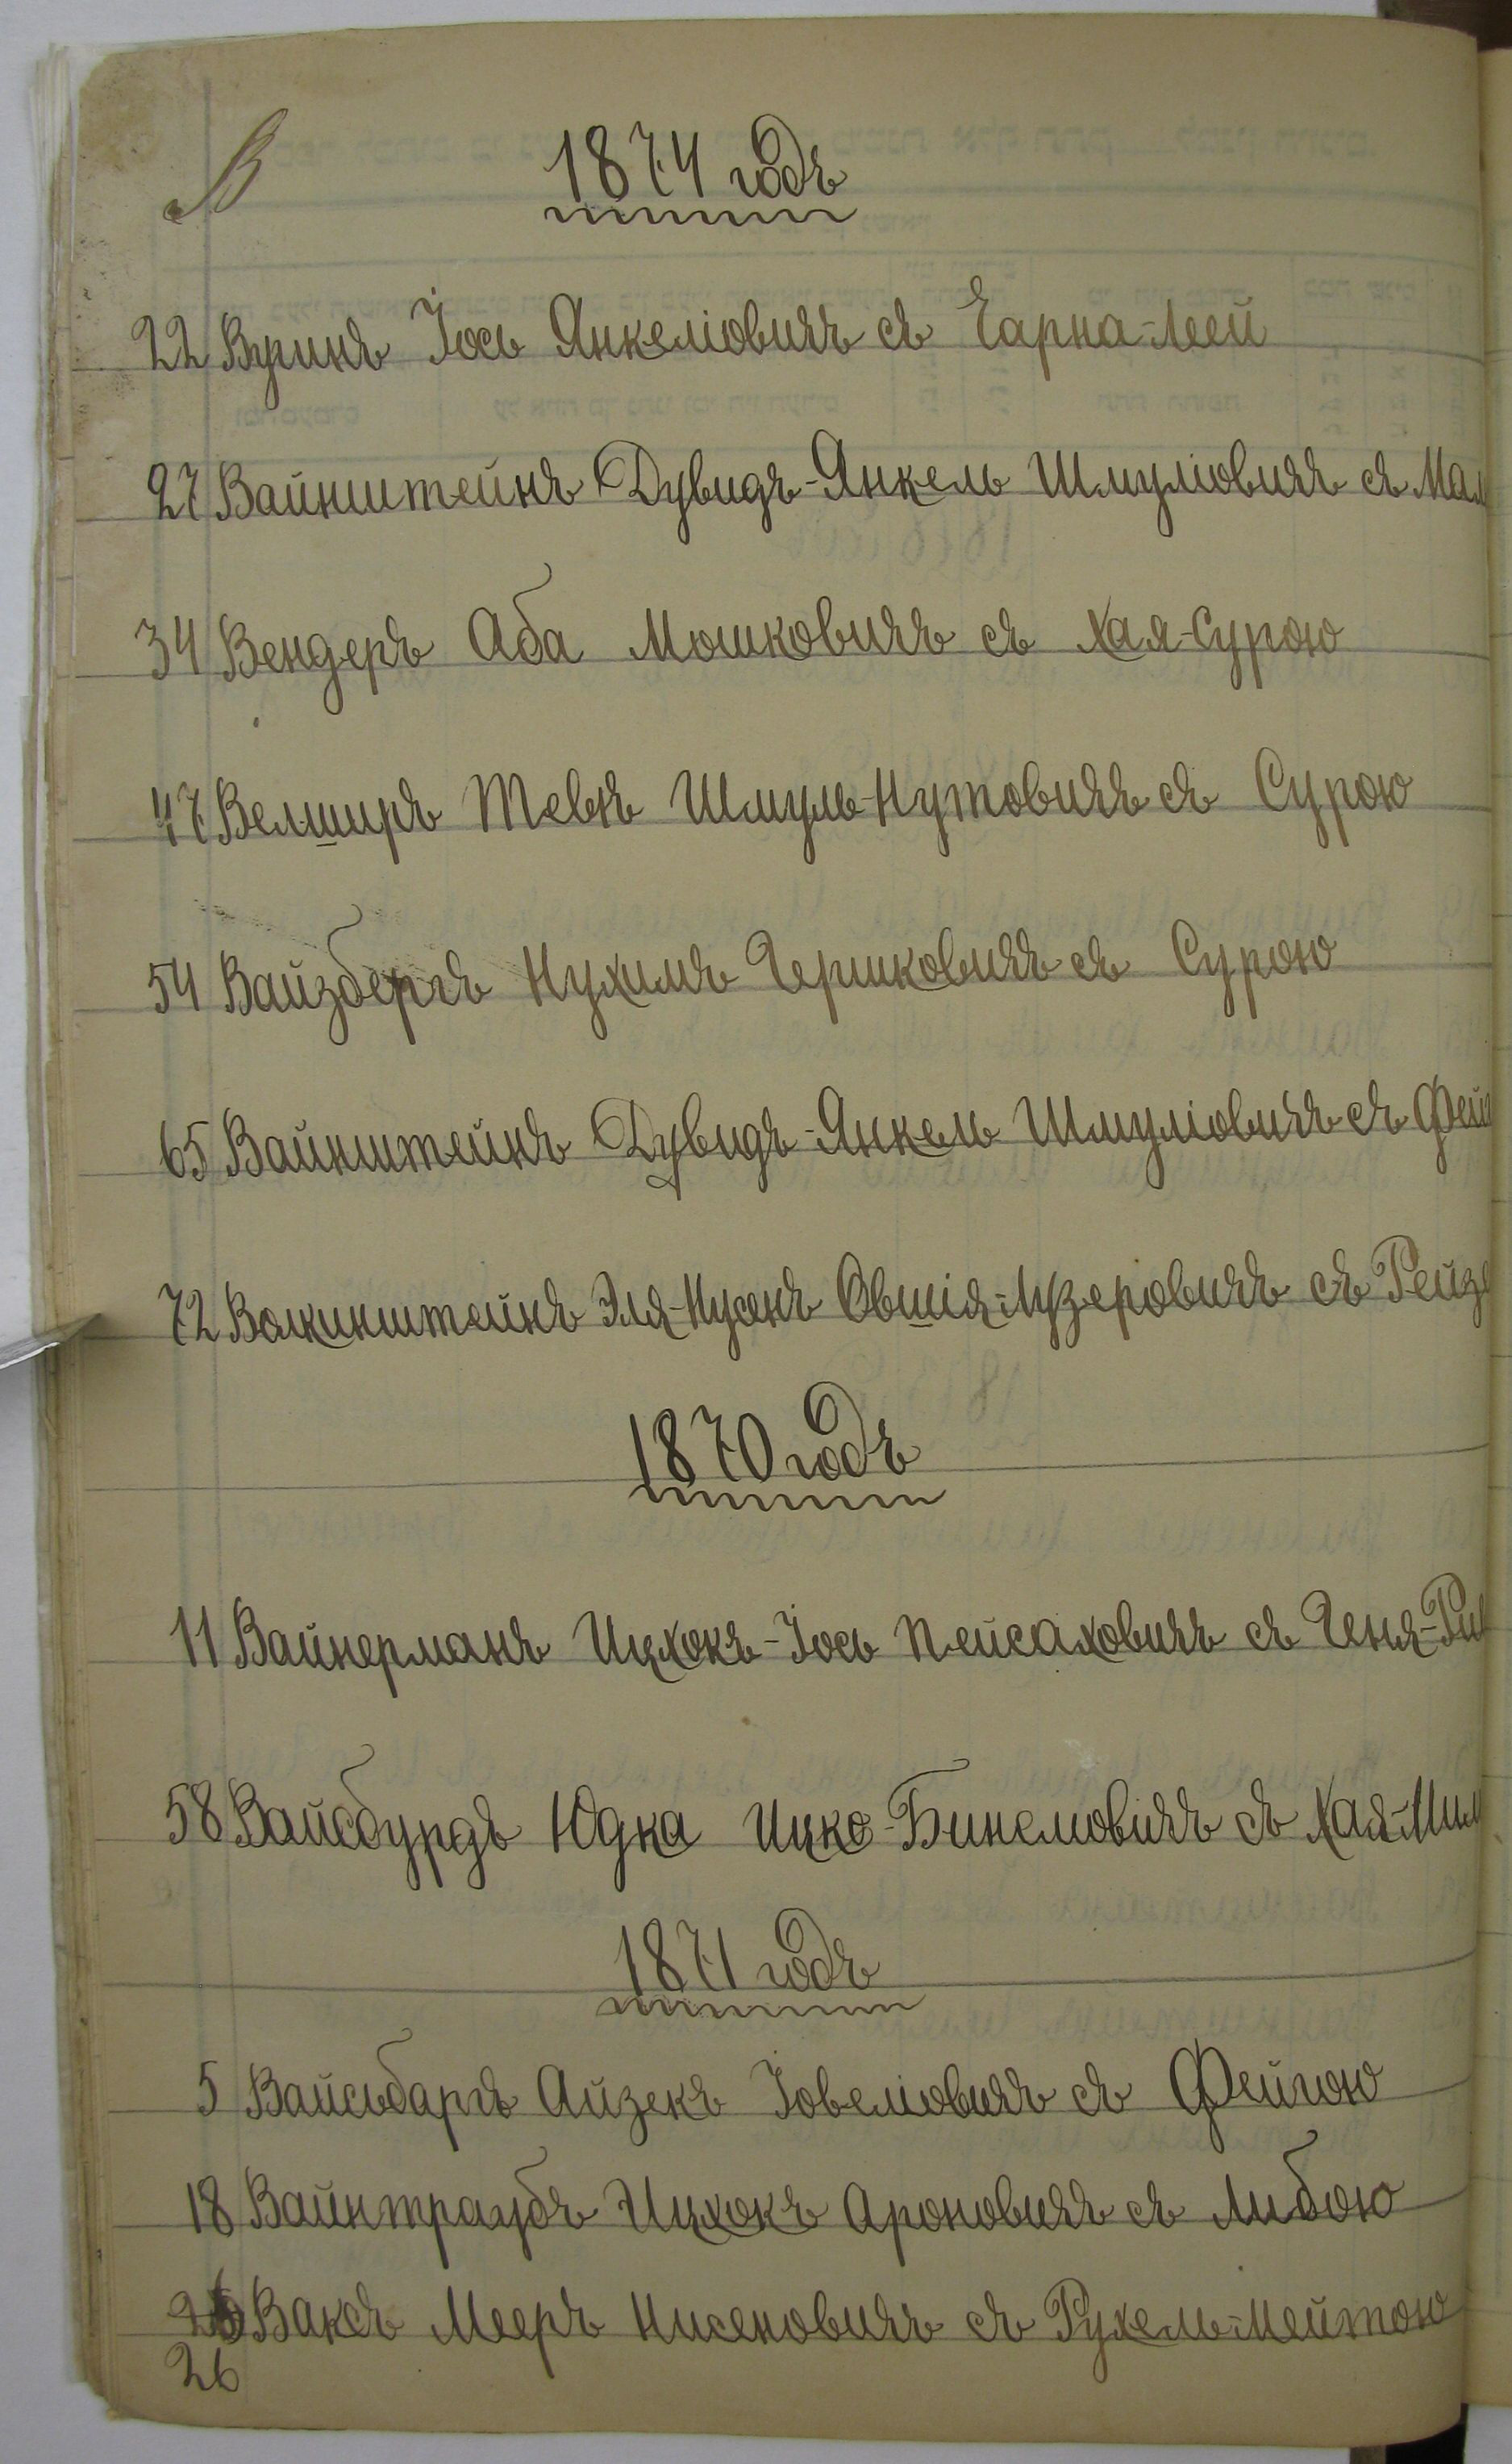 В
1874 годъ
22 Вуринъ Іось Янкеліовичъ съ Чарна-Леей
27 Вайнштейнъ Дувидъ-Янкель Шмуліовичъ съ Мал
34 Вендеръ Аба Мошковичъ съ Хая-Сурою
47 Велширъ Тевя Шмуль-Нутовичъ съ Сурою
54 Вайзбергъ Нухимъ Гершковичъ съ Сурою
65 Вайнштейнъ Дувидъ-Янкель Шмуліовичъ съ Фей
72 Волкинштейнъ Эля-Нусенъ Овшія-Лузеровичъ съ Рейз
1870 годъ
11 Вайнерманъ Ицхокъ-Іось Пейсаховичъ съ Геня-Рив
58 Вайсбурдъ Юдка Ицко-Бинемовичъ съ Хая-
1871 годъ
5 Вайсьбаргъ Айзекъ Іовеліовичъ съ Фейгою
18 Вайнтраубъ Ицхокъ Ароновичъ съ Либою
Ваксъ Мееръ Нисеновичъ съ Рухель-Лейтою
26